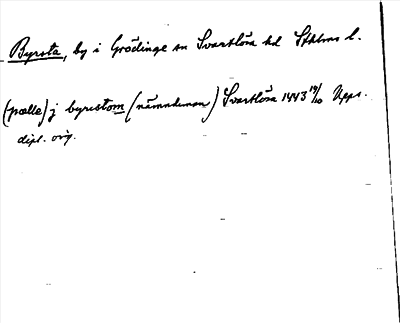 Byrsta, by i Grödinge sn Svartlösa hd Sthlms l.
(pælle) j byrestom (nämndeman) Svartlösa 1443 19/10 Upps.
dipl. orig.